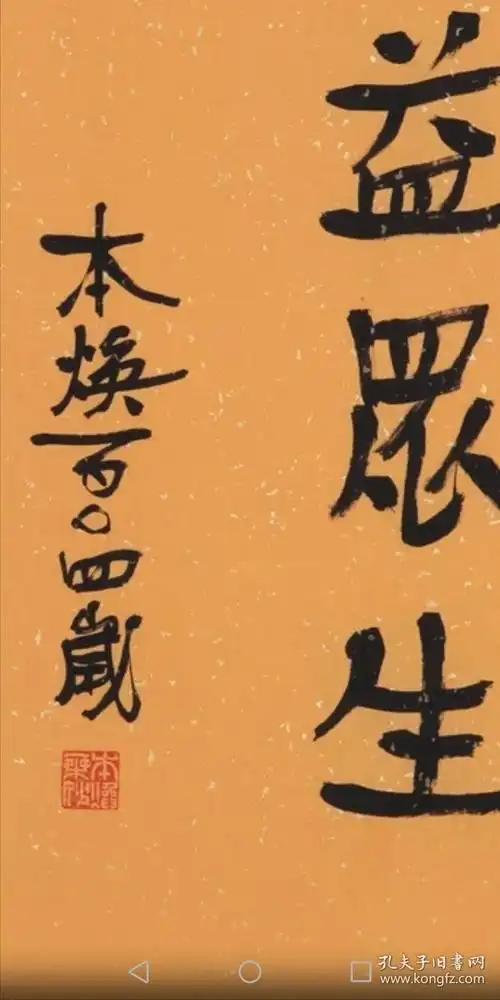 益眾生
本焕百〇四歲
孔夫子旧书网
www.kongfz.com